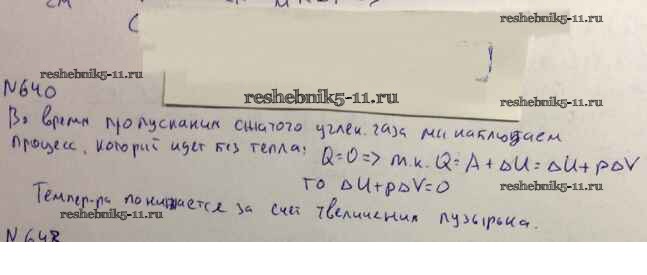 см
reshebnik5-11.ru
reshebnik5-11.ru
reshebnik5-11.ru
reshebnik5-11.ru
N640
Во время пропускания сжатого углек. газа ми наблюдаем
процесс, который идет без тепла: Q=0 => т.к. Q=A+ΔU=ΔU+pΔV
то ΔU+pΔV=0
Темпер-ра понижается за счет увеличения пузырька.
reshebnik5-11.ru
reshebnik5-11.ru
reshebnik5-11.ru
N648